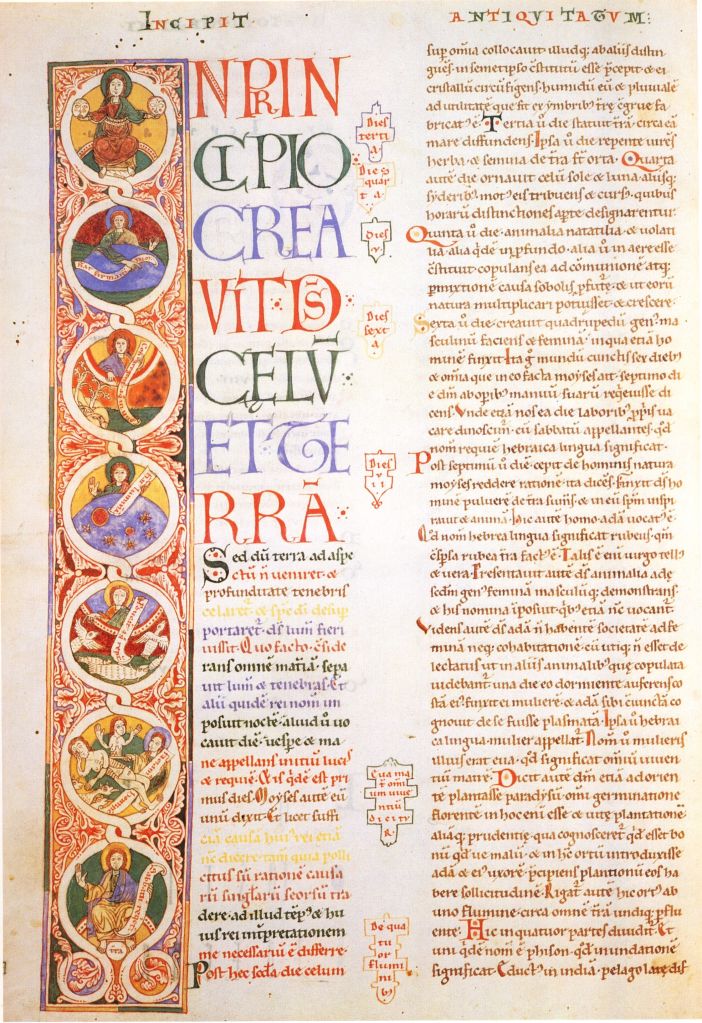 INCIPIT
ANTIQUITATUM:
N PRIN
CIPIO
CREA
VIT DS̄
CELV̄
ET TE
RRĀ
Sed dū terra ad aspe
ctū ñ veniret · &
profunditate tenebris
celaret᷑ · & spē di desup̄
portaret᷑ · dš lumī fieri
iussit · Quo facto · cšide
rans omnē materiā · sepa
uit lum̄ & tenebras · Et
alii quidē rei nom̄ im
posuit noctē · aliud ū uo
cauit diē · uespe & ma
ne appellans initiū lucis
& requiē · & is qdē est pri
mus dies · Moyses autē eū
unū dixit · Et licet suffi
ciā causā hui' rei etiā
nc̄ dicere · tam̄ quia polli
citus sū rationē causa
rū singlarū seorsū tra
dere · ad illud temp' & hu
ius rei int̄pretationem
me necessariū ē differre ·
Post hec scda die celum
Dies
tertia
Dies
quar
ta
Dies
v
Dies
sexta
Dies
vii
Eua ma
t̄ omi
um uiue
ntiū
dicit᷑
De qua
tu
or
flumi
nib'
sup om̄ia collocauit illudq; ab aliis distin
guēs in semetipso cstitutū esse p̄cepit · & ei
cristallū circūfigens · humidū eū & pluuialē
ad utilitatē que fit ex ymbrib' t̄rē cgrue fa
bricat' ē · Tertia ū die statuit t̄rā · circa eā
mare diffundens · Ipsa ū die repente uires
herbe · & semina de t̄ra st̄ orta · Quarta
autē die ornauit celū sole & luna · aliisq;
syderib' mot' eis tribuens & curs' · quibus
horarū distinctiones apte designarentur
Quinta ū die animalia natatilia · & uolati
lia · alia qdē in p̄fundo · alia ū in aere esse
cstituit copulans ea ad comunionē atq;
p̄mixtionē causa sobolis p̄ferēde · & ut eorū
natura multiplicari potuisset & crescere ·
Sexta ū die creauit quadrupedū gen' ma
sculinū faciens & feminā · in qua etiā ho
minē finxit · Ita g̊ mundū cunctis sex dieb'
& om̄ia que in eo facta moyses ait · septimo di
e dm̄ ab oprib' manuū suarū reqeuisse di
cens · Unde etiā nos ea die laborib' pp̄iis ua
care dinoscim̄ · eū sabbatū appellantes · qd
nom̄ requiē hebraica lingua significat ·
Post septimū ū diē cepit de hominis natura
moyses reddere rationē · ita dicēs · Finxit dš ho
minē puluere de t̄ra sum̄s · & in eū spm̄ inspi
rauit & animā · Hic autē homo adā uocat' ē
Qd nom̄ hebrea lingua significat rubeus · qm̄
cspsa rubea t̄ra fact' ē · Talis ē enī uirgo tell'
& uera · Presentauit autē dš animalia adę
scdm̄ gen' feminā masculūq; demonstrans
& his nomina īposuit · qb' etiā nc̄ uocant᷑ ·
Videns autē dš adā ñ habentē societatē ad fe
minā neq; cohabitationē · cū utiq; ñ esset de
lectatus ut in aliis animalib' · quę copulata
uidebant᷑ · una die eo dormiente auferens co
stā ei' · finxit ei mulierē · & adā sibi cuncta co
gnouit de se fuisse plasmatā · Ipsa ū hebrai
ca lingua · mulier appellat᷑ · Nom̄ ū mulieris
illius erat eua · qd significat omniū uiuen
tiū matrē · Dicit autē dm̄ etiā ad orien
tē plantasse paradysū · om̄i germinatione
florentē · in hoc enī esse & uitę plantationē
aliāq; prudentię · qua cognosceret᷑ qd esset bo
nū · qd ue malū · & in hc̄ ortū introduxisse
adā · & ei' uxorē p̄cipiens plantionū eos ha
bere sollicitudinē · Rigat᷑ autē hic ort' · ab
uno flumine · circa omnē t̄rā undiq; p̄flu
ente · Hic in quatuor partes diuidit᷑ · Et
uni qdē nom̄ ē phison · qd inundationē
significat · Educt' in indiā · pelago late dif